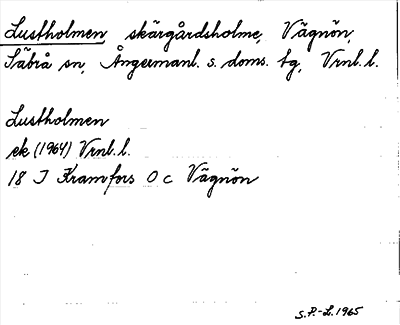 Lustholmen, skärgårdsholme, Vägnön,
Säbrå sn, Ångermanl. s. doms. tg, Vrnl. l.
Lustholmen
ek (1964) Vrnl. l.
18 I Kramfors O c Vägnön
S.P.-L. 1965